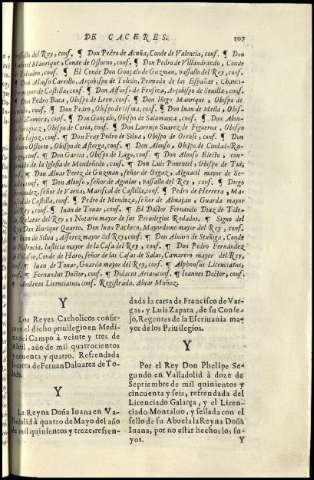 DE CACERES. 107
vassallo del Rey, conf. ¶ Don Pedro de Acuña, Conde de Valencia, conf. ¶ Don
Gabriel Manrique, Conde de Osorno, conf. ¶ Don Pedro de Villandrando, Conde
de conf. ¶ El Conde Don Gonçalo de Guzman, vassallo del Rey, conf.
Don Alonso Carrillo, Arçobispo de Toledo, Primado de las Españas, Chanci-
ller mayor de Castilla, conf. ¶ Don Alfonso de Fonseca, Arçobispo de Sevilla, conf.
Don Pedro Obispo de Leon, conf. ¶ Don Iñigo Manrique, Obispo de
conf. ¶ Don Pedro, Obispo de Osma, conf. ¶ Don Iuan de Mella, Obispo
de Zamora, conf. ¶ Don Gonçalo, Obispo de Salamanca, conf. ¶ Don
Obispo de Coria, conf. ¶ Don Lorenço Suarez de Figueroa, Obispo
conf. ¶ Fray Pedro de Silva, Obispo de Orense, conf. ¶ Don
Obispo de Astorga, conf. ¶ Don Alonso, Obispo de Ciudad-Ro-
drigo, conf. ¶ Don Garcia, Obispo de Lugo, conf. ¶ Don Alonso Electo, con-
firmado de la Iglesia de Mondoñedo, conf. ¶ Don Luis Pimentel, Obispo de Tuy,
conf. ¶ Don Alvar Perez de Guzman, señor de Orgaz, Alguacil mayor de Se-
villa, conf. ¶ Don Alonso, señor de Aguilar, vassallo del Rey, conf. ¶ Diego
señor de conf. ¶ Pedro de Herrera, Ma-
riscal de Castilla, conf. ¶ Pedro de Mendoza, señor de Almazan, Guarda mayor
del Rey, conf. ¶ Iuan de Tovar, conf. ¶ El Doctor Fernando Diaz de Tole-
do, Relator del Rey, y Notario mayor de los Privilegios Rodados. ¶ Signo del
Rey Don Enrique Quarto. Don Iuan Pacheco, Mayordomo mayor del Rey, conf. ¶
Iuan de Silva, Alferez mayor del Rey, conf. ¶ Don Alvaro de Stuñiga, Conde
de Plasencia, Iusticia mayor de la Casa del Rey, conf. ¶ Don Pedro Fernandez
de Velasco, Conde de Haro, señor de las Casas de Salas, Camarero mayor del Rey,
conf. ¶ Iuan de Tovar, Guarda mayor del Rey, conf. ¶ Alphonsus Licenciatus.
¶ Fernandus Doctor, conf. ¶ Didacus Arias, conf. ¶ Ioannes Doctor, conf.
Andreas Licenciatus, conf. Registrada. Alvar Muñoz.
Y
Los Reyes Catholicos confir-
maron el dicho privilegio en Medi-
na del Campo à veinte y tres de
Abril, año de mil quatrocientos
y ochenta y quatro. Refrendada
la carta de Fernan Daluarez de To-
ledo.
Y
La Reyna Doña Iuana en Va-
lladolid à quatro de Mayo del año
de mil quinientos y treze, refren-
dada la carta de Francisco de Var-
gas, y Luis Zapata, de su Conse-
jo, Regentes de la Escriuania ma-
yor de los Priuilegios.
Y
Por el Rey Don Phelipe Se-
gundo en Valladolid à doze de
Septiembre de mil quinientos y
cincuenta y seis, refrendada del
Licenciado Galarga, y el Licen-
ciado Montaluo, y sellada con el
sello de su Abuela la Reyna Doña
Iuana, por no estar hechos los su-
yos. Y